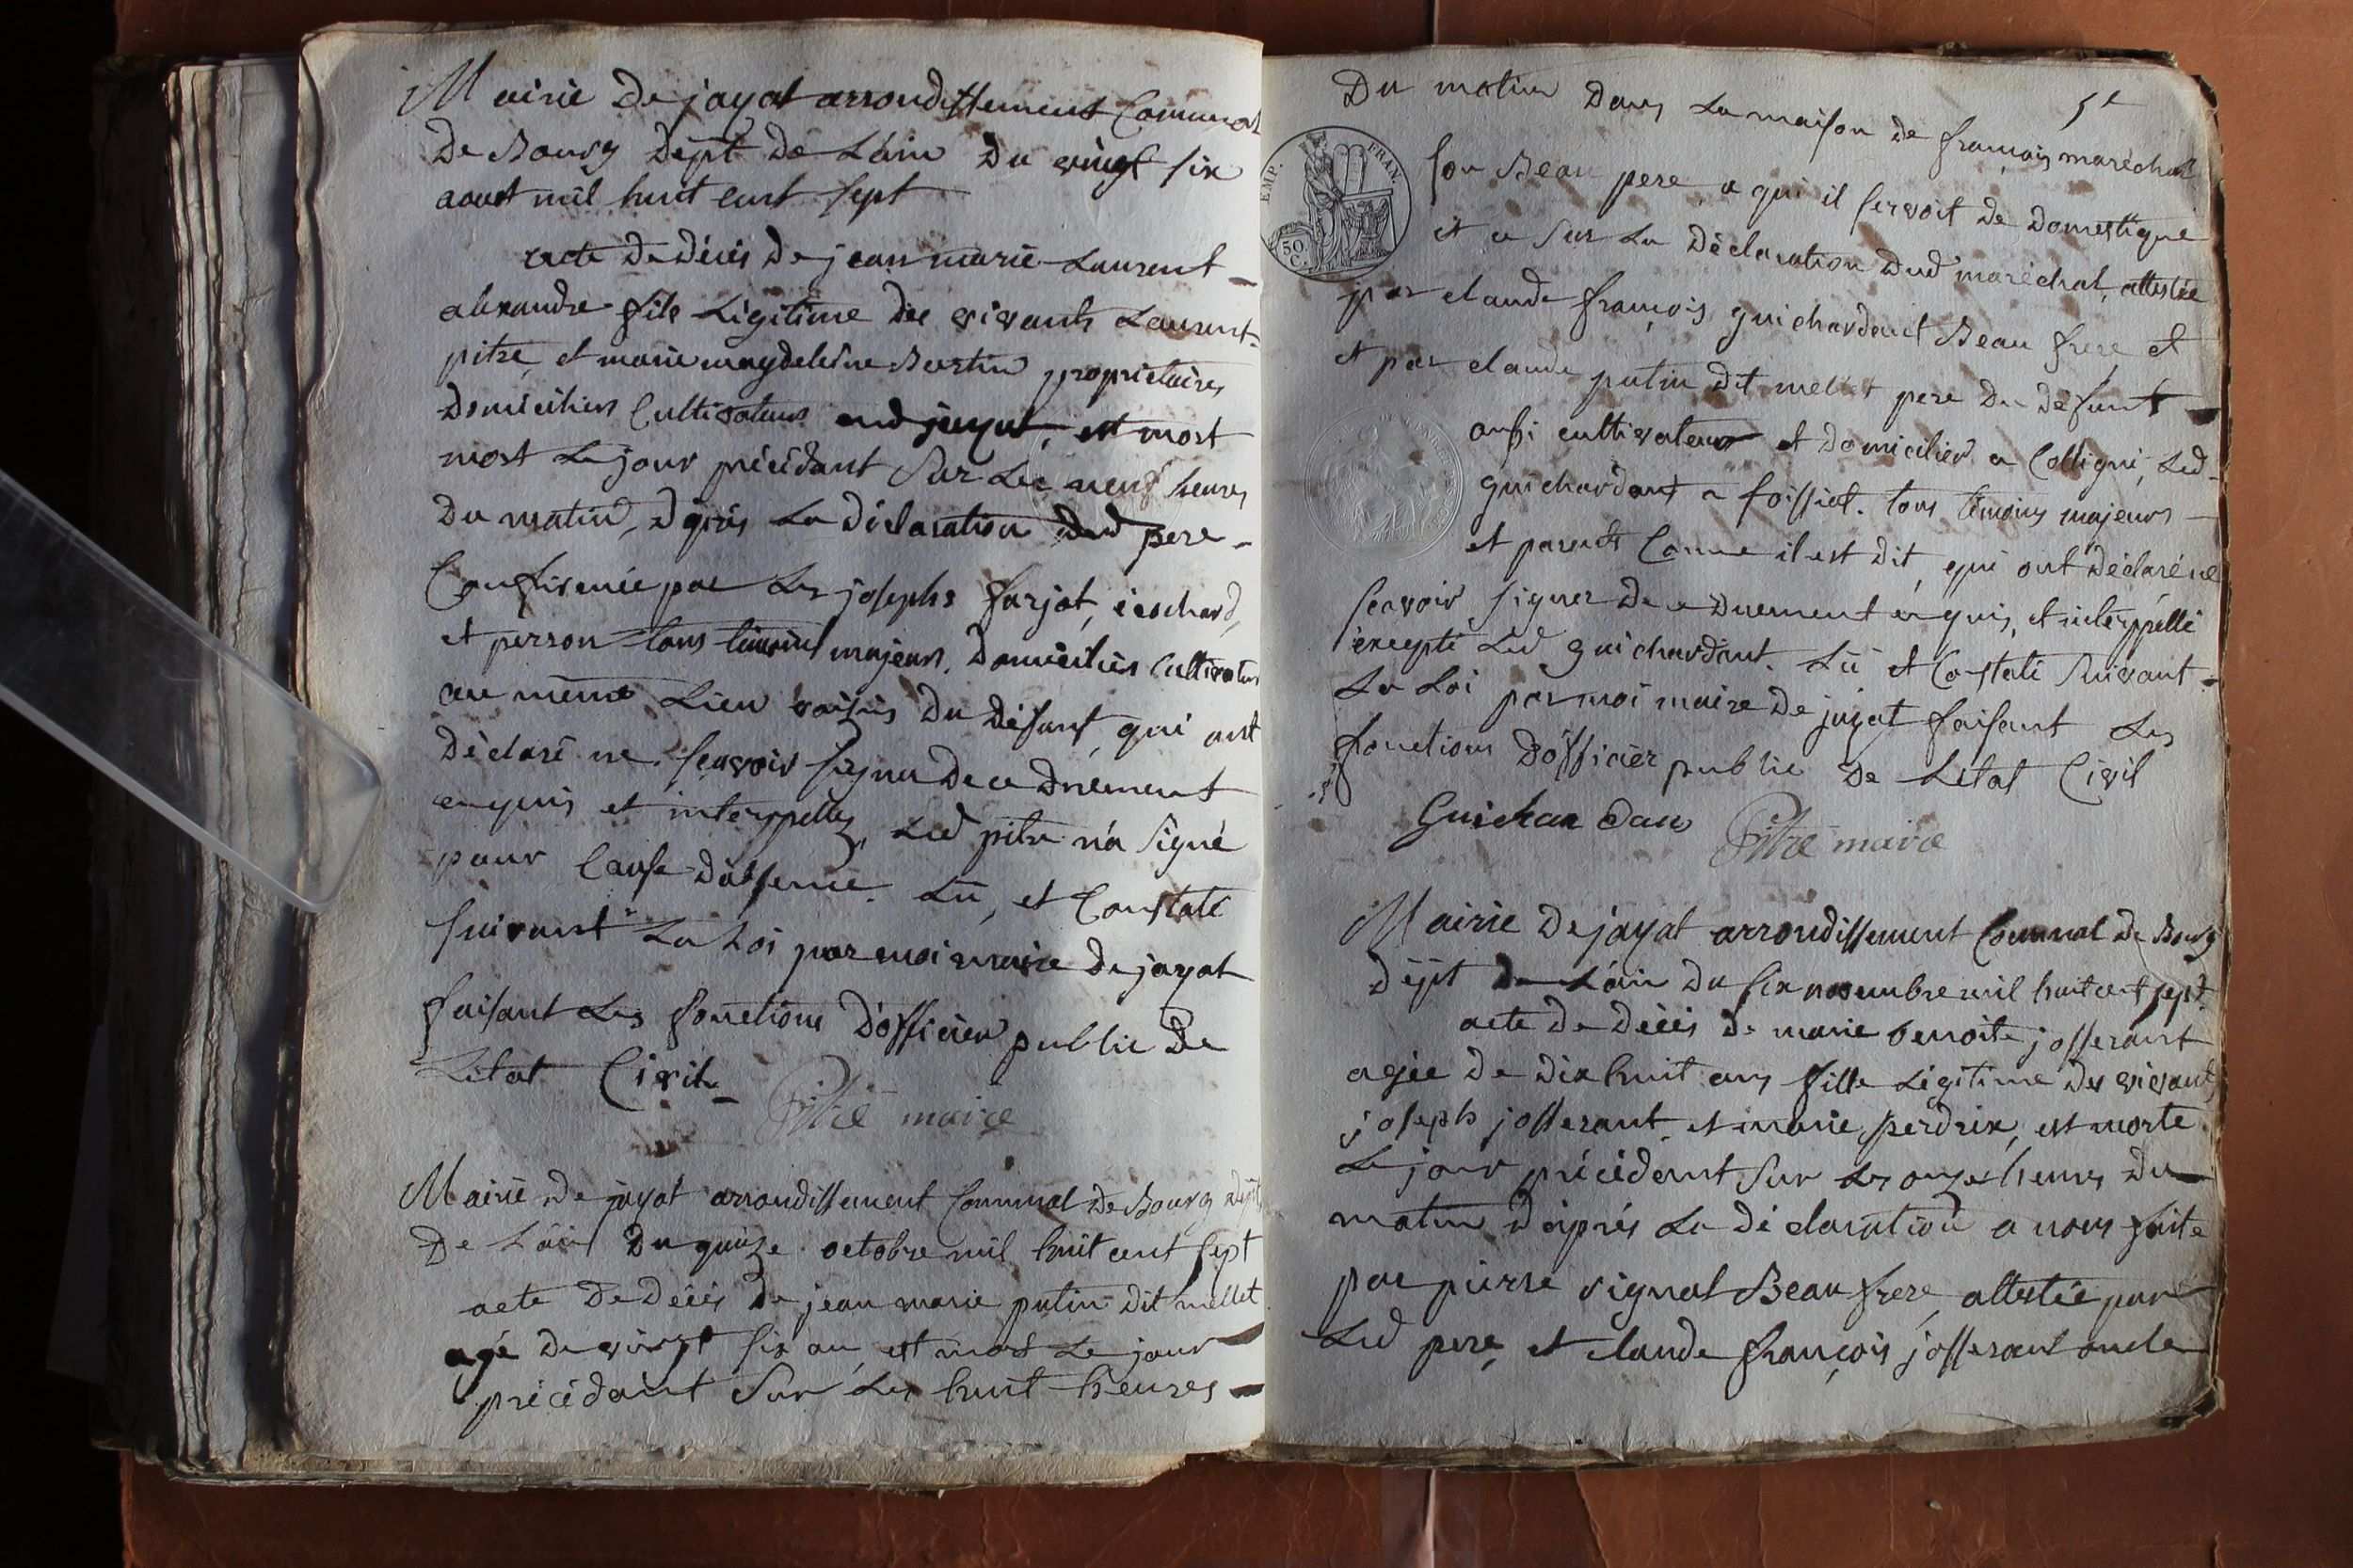 Mairie De jayat arrondissement Communal
De Bourg Dépt De L'ain Du vingt six
aoust mil huit cent sept
acte De Décés De jean marie Laurent
alexandre fils Légitime des vivants Laurent
pitre, et marie magdeleine Bertin propriétaires
Domiciliers Cultivateurs aud jayat, est mort
mort Le jour précédant Sur Les neuf heures
Du matin, d'aprés La Déclaration Dud pere
Confirmée par Les josephs farjot,
et perron tous témoins majeurs, Domiciliés Cultivateurs
au même Lieu voisins Du Défunt, qui ont
Déclaré ne Scavoir Signer De ce Duement
enquis et interppellés, Led pitre n'a Signé
pour Cause d'absence. Lû, et Constaté
Suivant La Loi par moi maire De jayat
faisant Les fonctions D'officier public De
L'etat Civil
Pitre maire
Mairie De jayat arrondissement Communal De Bourg Dépt
De L'ain Du quinze octobre mil huit cent sept
acte De Décés De jean marie putin Dit mellet
agé De vingt six an, est mort Le jour
précédant Sur Les huit heures
5e
Du matin Dans La maison De françois maréchal
Son Beau pere a qui il Servoit De Domestique
et ce Sur La Déclaration Dud maréchal, attestée
par claude françois guichardant Beau frere et
et par claude putin Dit mellet pere Du défunt
aussi cultivateur et Domicilier a Colligni, Led
guichardant a foissiat. tous témoins majeurs
et parents Comme il est Dit, qui ont Déclaré ne
Scavoir Signer De ce Duement enquis, et interppellé
excepté Led guichardant. Lû et Constaté Suivant
La Loi par moi maire De jayat faisant Les
fonctions D'officier public De L'etat Civil
Guichardan Pitre maire
EMP. FRAN.
50
C.
Mairie De jayat arrondissement Communal De Bourg
Dépt De L'ain Du six novembre mil huit cent sept
acte De Décés De marie benoite josserant
agée De dix huit ans fille Légitime Des vivants
joseph josserant et marie perdrix, est morte
Le jour précédent Sur Les onze heures Du
matin D'aprés La Déclaration a nous faite
par pierre vignal Beau frere, attestée par
Led pere, et claude françois josserant oncle